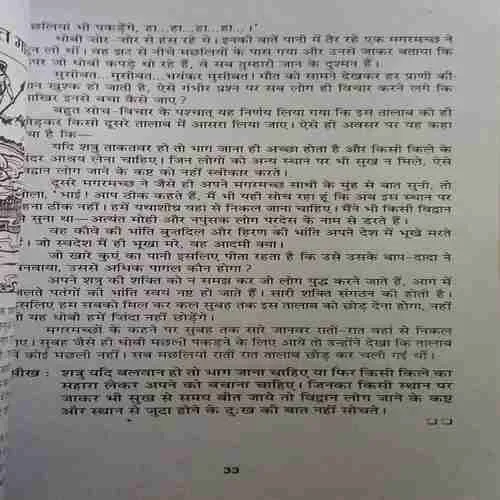 छलियां भी पकड़ेंगे, हा...हा...हा...हा...।'
धोबी जोर-जोर से हंस रहे थे। इनकी बातें पानी में तैर रहे एक मगरमच्छ ने
लो थीं। वह झट से नीचे मछलियों के पास गया और उनसे जाकर बताया कि
पर जो धोबी कपड़े धो रहे हैं, वे सब तुम्हारी जान के दुश्मन हैं।
मुसीबत...मुसीबत...भयंकर मुसीबत। मौत को सामने देखकर हर प्राणी की
खुश्क हो जाती है, ऐसे गंभीर प्रश्न पर सब लोग ही विचार करने लगे कि
खिर इनसे बचा कैसे जाए?
बहुत सोच-विचार के पश्चात् यह निर्णय लिया गया कि इस तालाब को ही
ड़कर किसी दूसरे तालाब में आसरा लिया जाए। ऐसे ही अवसर पर यह कहा
है कि—
यदि शत्रु ताकतवर हो तो भाग जाना ही अच्छा होता है और किसी किले के
दर आश्रय लेना चाहिए। जिन लोगों को अन्य स्थान पर भी सुख न मिले, ऐसे
द्वान लोग जाने के कष्ट को नहीं स्वीकार करते।
दूसरे मगरमच्छ ने जैसे ही अपने मगरमच्छ साथी के मुंह से बात सुनी, तो
ला, 'भाई! आप ठीक कहते हैं, मैं भी यही सोच रहा हूं कि अब इस स्थान पर
ना ठीक नहीं। हमें यथाशीघ्र यहां से निकल जाना चाहिए। मैंने भी किसी विद्वान
सुना था—अत्यंत मोही और नपुंसक लोग परदेस के नाम से डरते हैं।
वह कौवे की भांति बुजदिल और हिरण की भांति अपने देश में भूखे मरते
जो स्वदेश में ही भूखा मरे, वह आदमी क्या।
जो खारे कुएं का पानी इसलिए पीता रहता है कि उसे उसके बाप-दादा ने
नवाया, उससे अधिक पागल कौन होगा?
अपने शत्रु की शक्ति को न समझ कर जो लोग युद्ध करने जाते हैं, आग में
लते पतंगों की भांति स्वयं नष्ट हो जाते हैं। सारी शक्ति संगठन की होती है।
सलिए हम सबको मिल कर कल सुबह तक इस तालाब को छोड़ देना होगा, नहीं
यह धोबी हमें जिंदा नहीं छोड़ेंगे।
मगरमच्छों के कहने पर सुबह तक सारे जानवर रातों-रात वहां से निकल
ए। सुबह जैसे ही धोबी मछली पकड़ने के लिए आये तो उन्होंने देखा कि तालाब
कोई मछली नहीं। सब मछलियां रातों रात तालाब छोड़ कर चली गई थीं।
सीख : शत्रु यदि बलवान हो तो भाग जाना चाहिए या फिर किसी किले का
सहारा लेकर अपने को बचाना चाहिए। जिनका किसी स्थान पर
जाकर भी सुख से समय बीत जाये तो विद्वान लोग जाने के कष्ट
और स्थान से जुदा होने के दु:ख की बात नहीं सोचते।
33